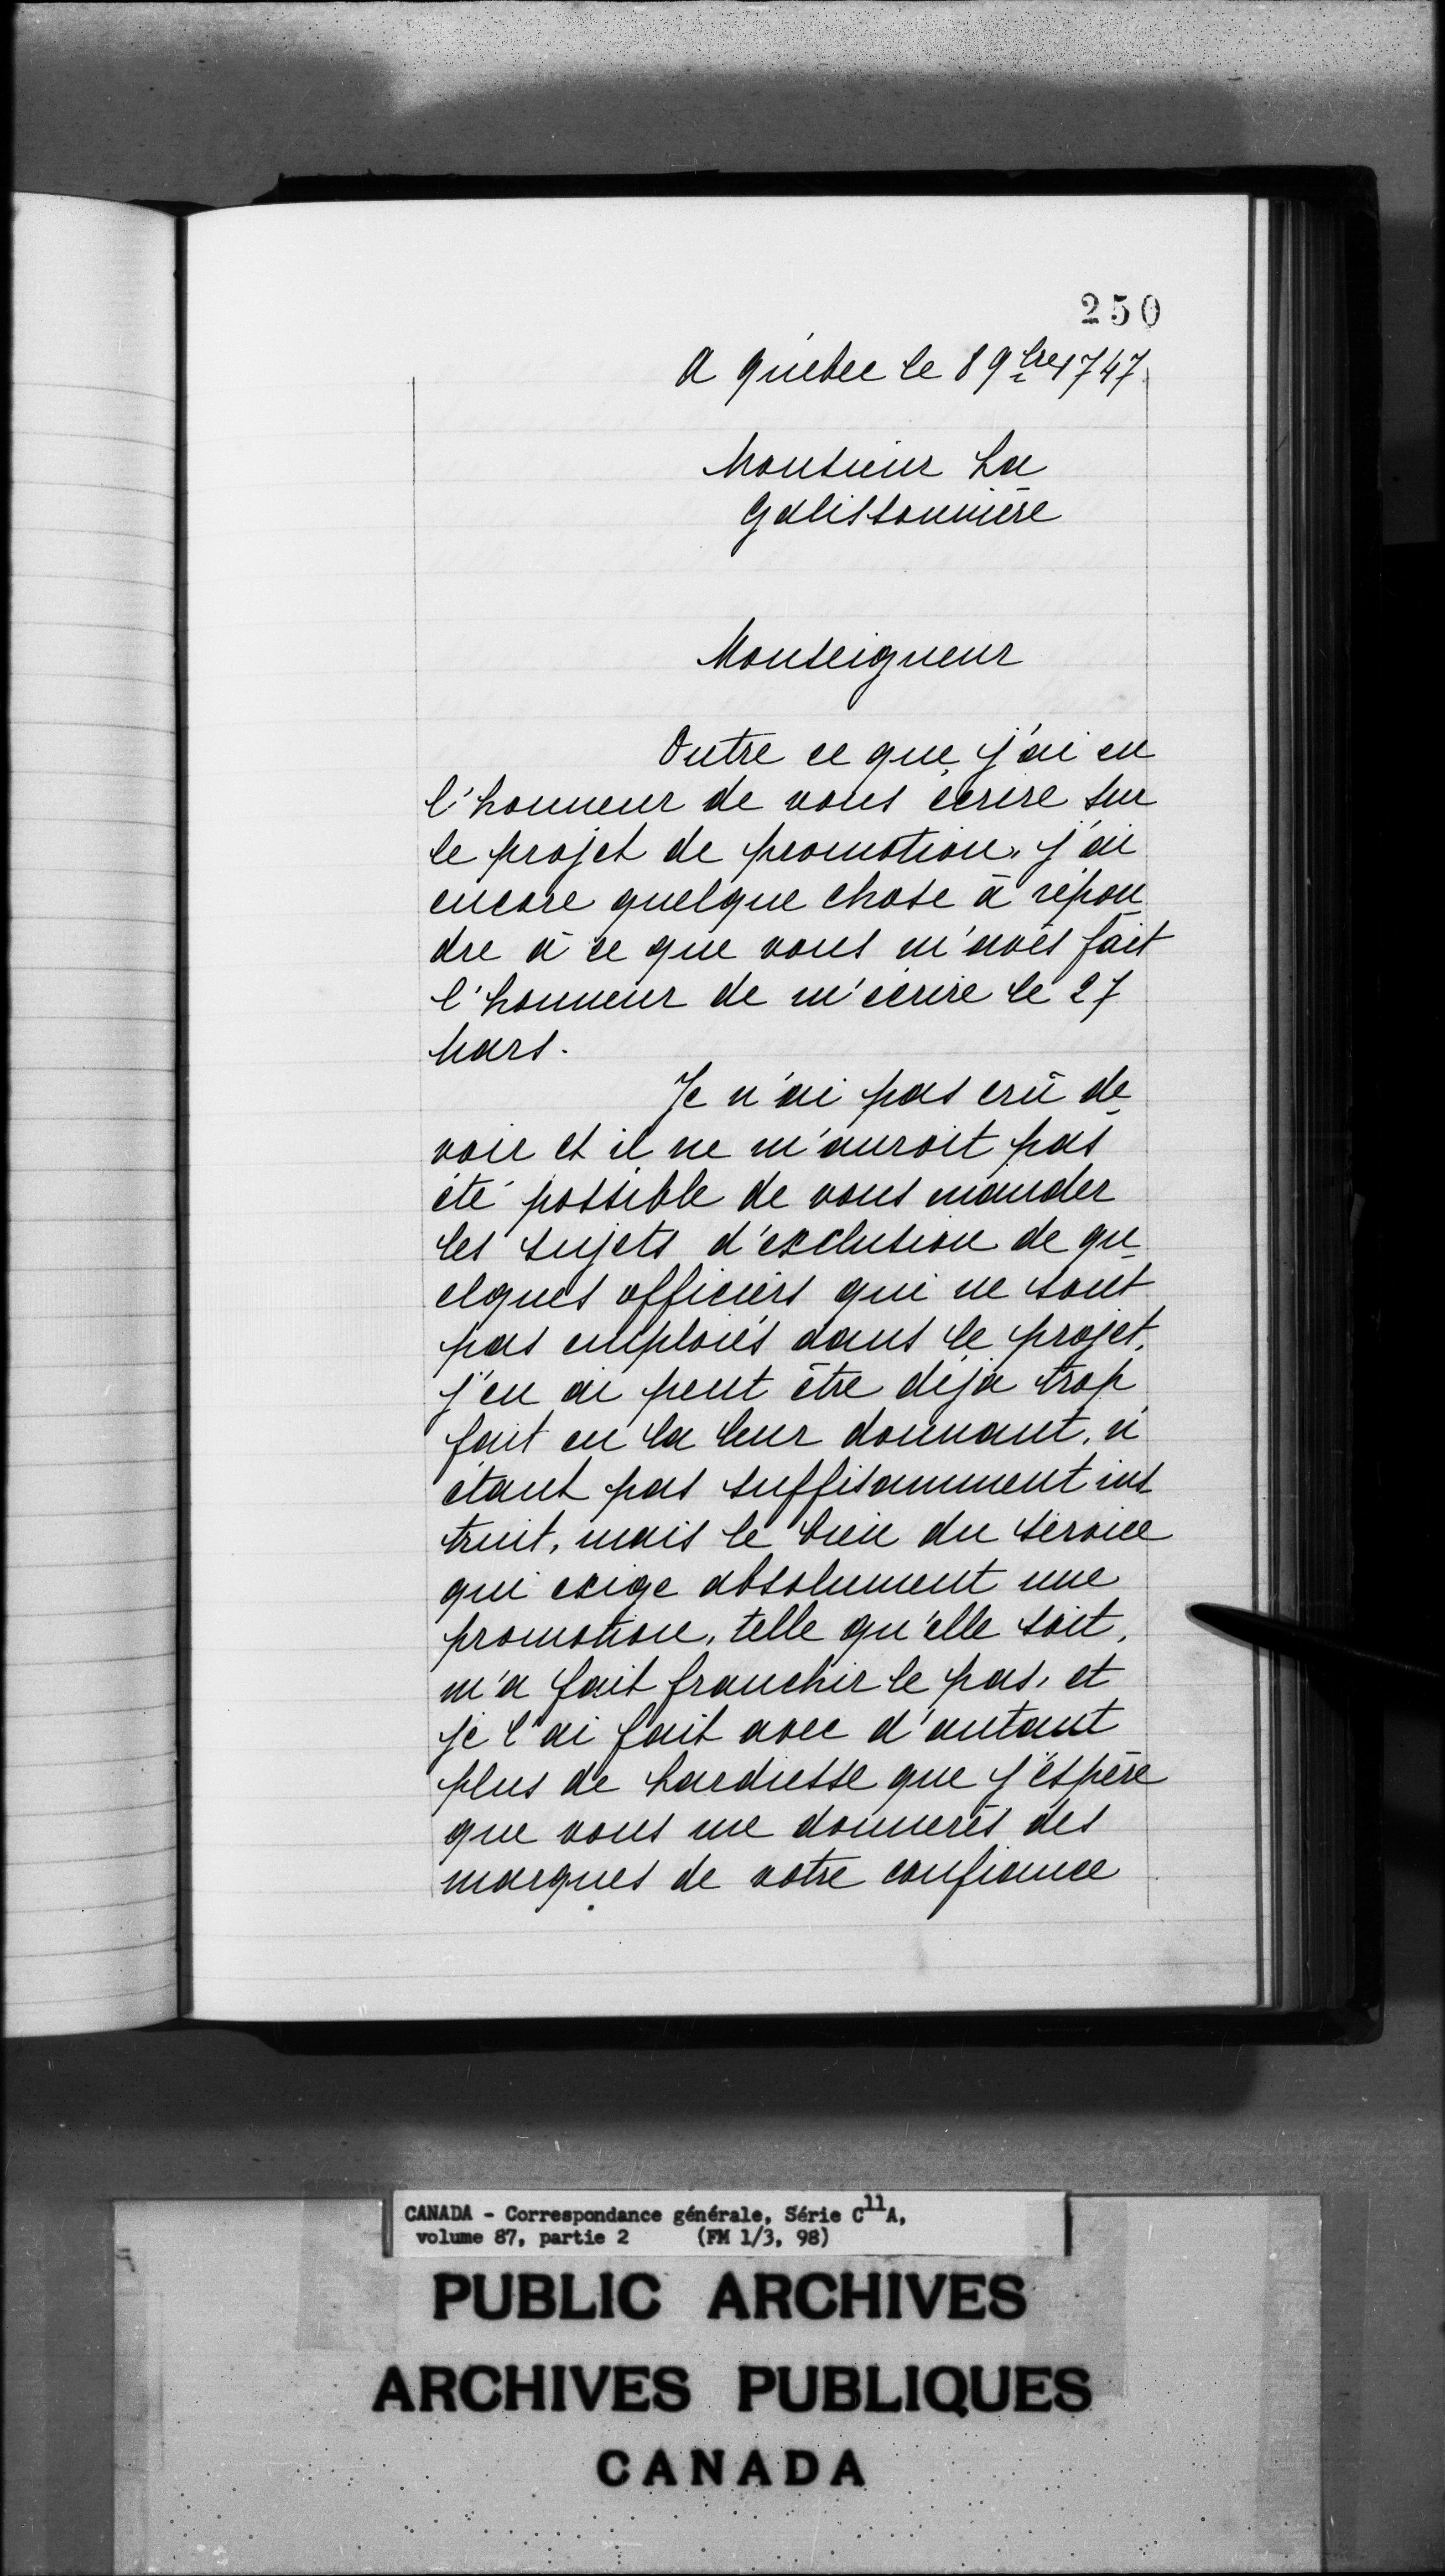 250
A Québec le 8 9bre 1747
Monsieur La
Galissonnière
Monseigneur
Outre ce que j'ai eu
l'honneur de vous écrire sur
le projet de promotion, j'ai
encore quelque chose à répon
dre à ce que vous m'avés fait
l'honneur de m'écrire le 27
Mars.
Je n'ai pas crû de
voir et il ne m'auroit pas
été possible de vous mander
les sujets d'exclusion de qu
elques officiers qui ne sont
pas emploiés dans le projet,
j'en ai peut être déja trop
fait en la leur donnant, n'
étant pas suffisamment ins
truit, mais le bien du service
qui exige absolument une
promotion, telle qu'elle soit,
m'a fait franchir le pas, et
je l'ai fait avec d'autant
plus de hardiesse que j'éspère
que vous me donnerés des
marques de votre confiance
CANADA - Correspondance générale, Série C11A,
volume 87, partie 2 (FM 1/3, 98)
PUBLIC ARCHIVES
ARCHIVES PUBLIQUES
CANADA